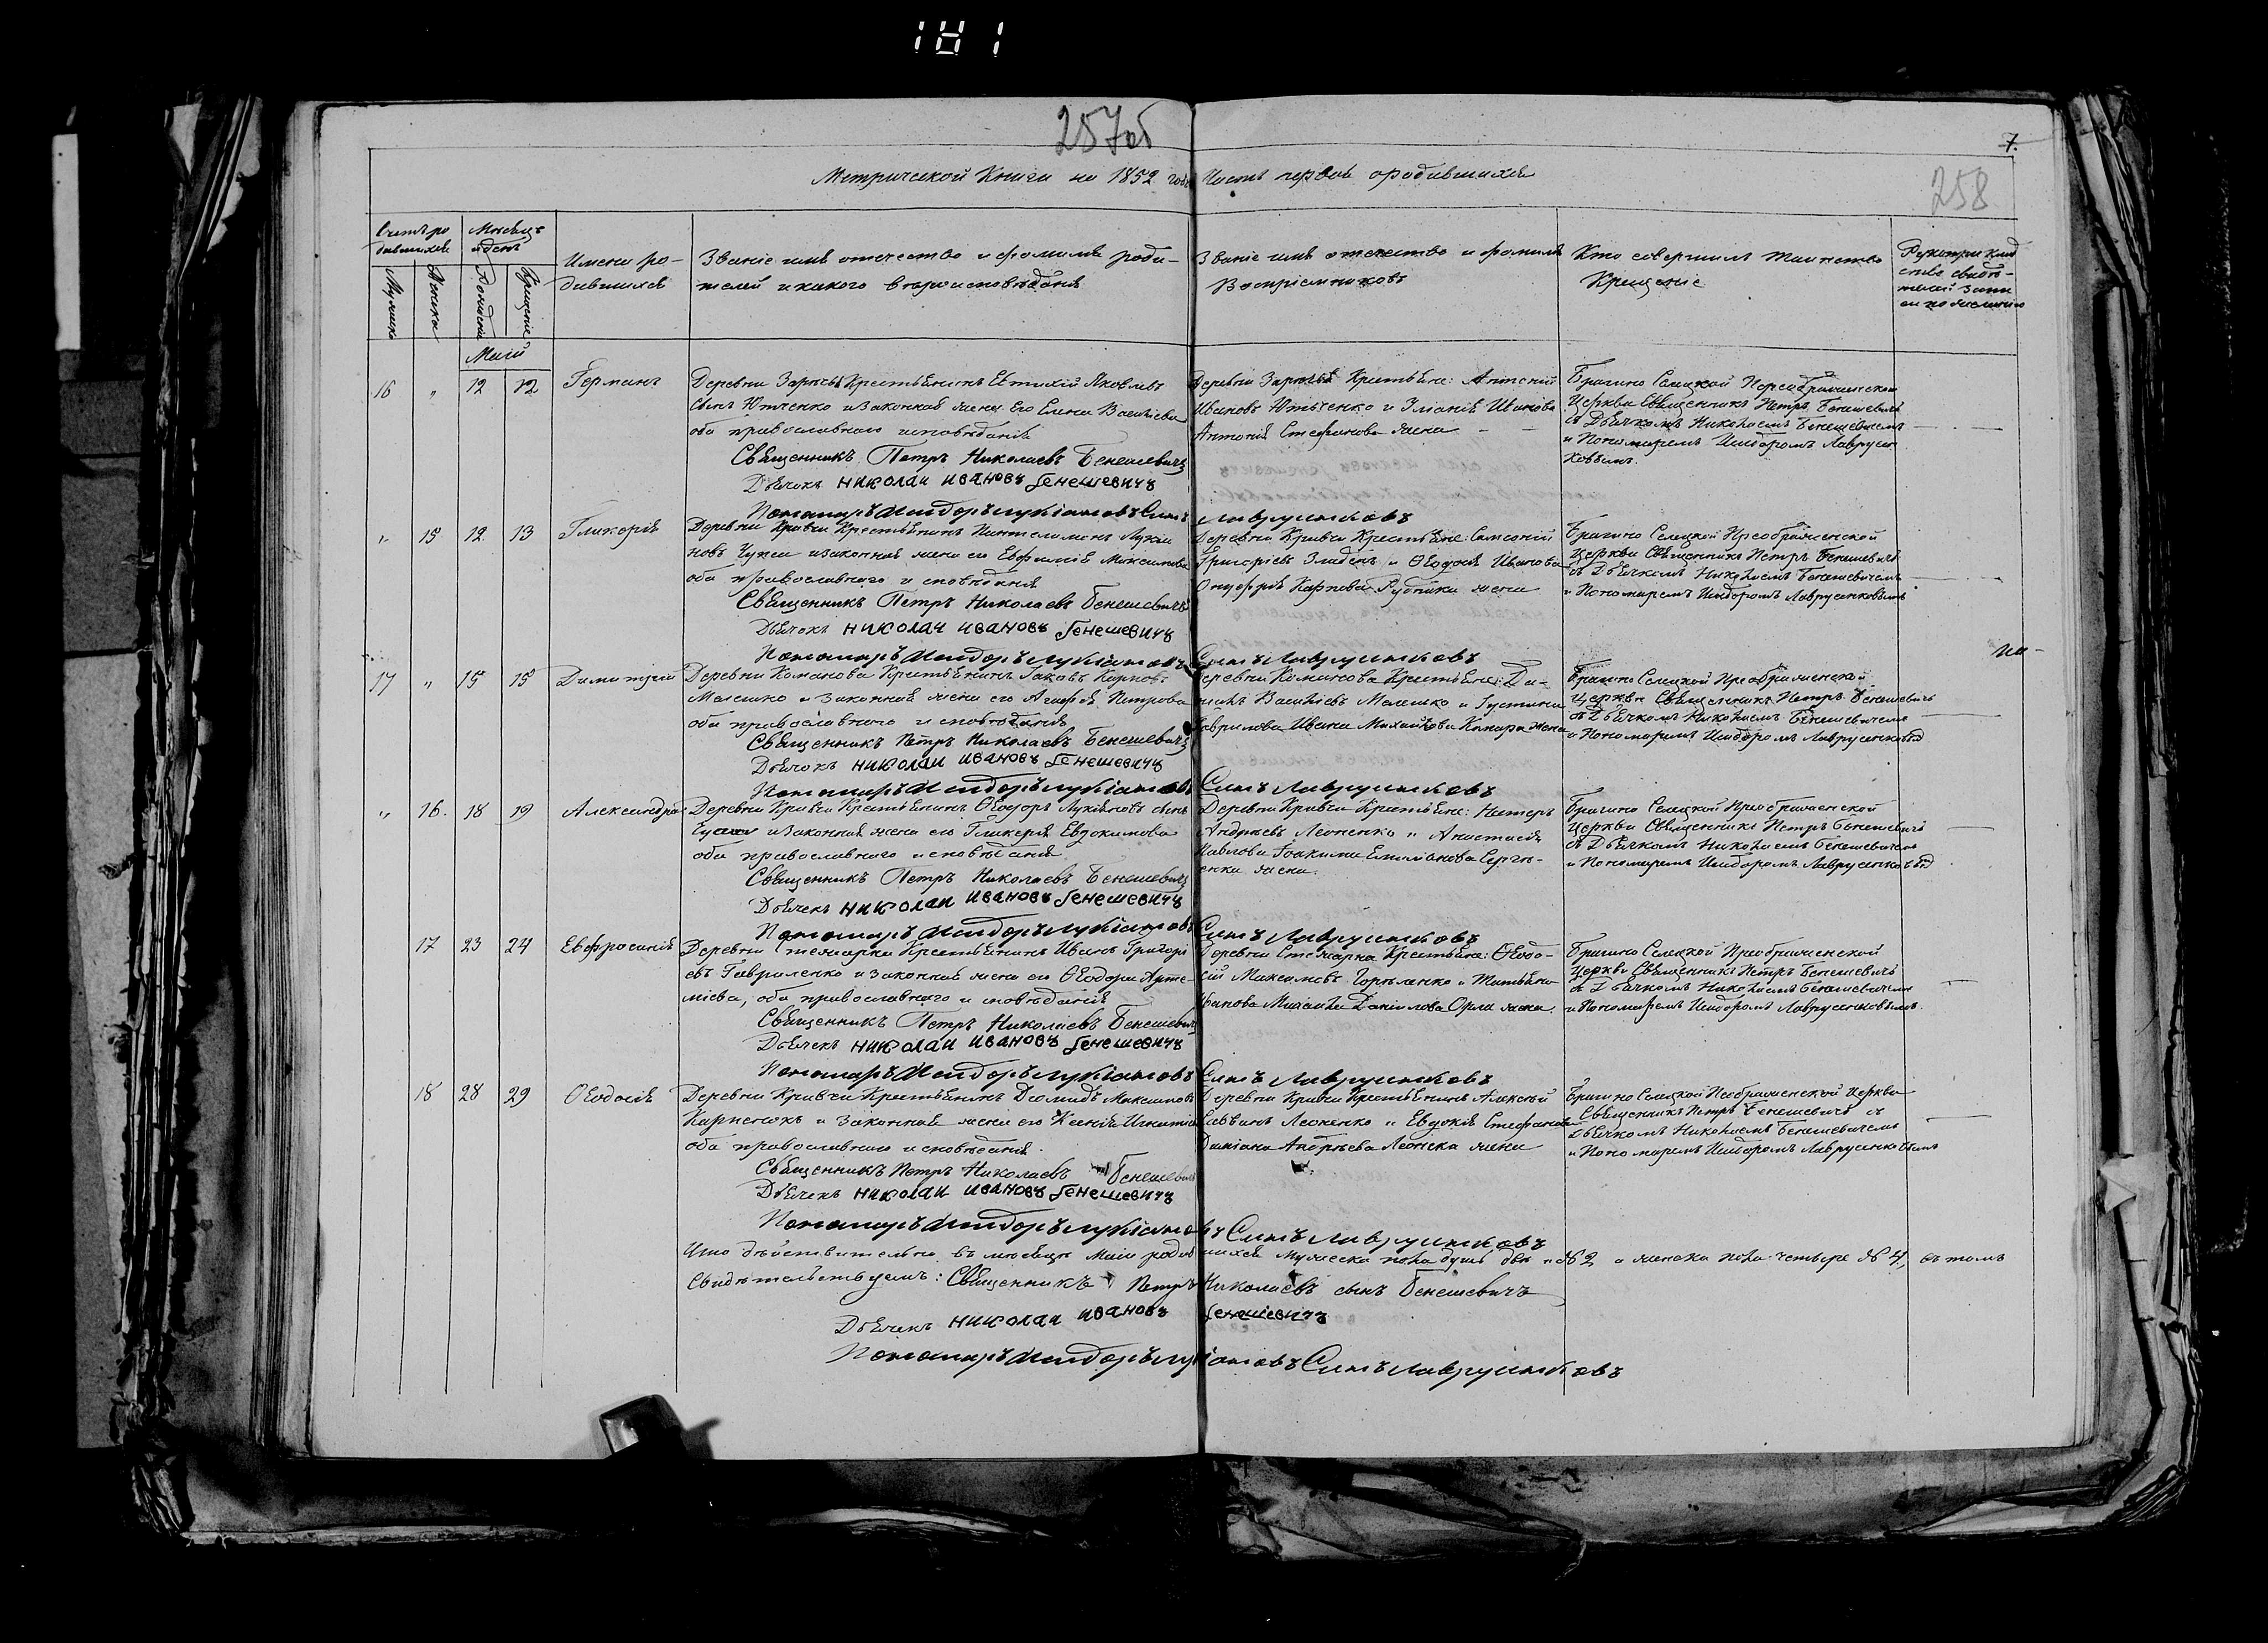 181
257об
7.
258
Метрической Книги на 1852 годъ Часть первая о родившихся
Счетъ ро
дившихся
Мужеска
Женска
Мѣсяцъ
и день
Рожденія
Крещенія
Имена ро-
дившихся
Званіе имя отечество и фамилія роди-
телей и какого вѣроисповѣданія
Званіе имя отечество и фамилія
Воспріемниковъ
Кто совершилъ таинство
Крещенія
Рукоприклад
ство свидѣ-
телей запи
си по желанію
Маій
16 " 12 12 Германъ
Деревни Крестьянинъ Евтихій Яковлевъ
сынъ Ютченко и законная жена его Елена Васильева
оба православнаго исповѣданія
Священникъ Петръ Николаевъ Бенешевичъ
Дьячокъ Николай Ивановъ Бенешевичъ
Пономарь Исидоръ Лукіановъ Сынъ Лавруенковъ
Деревни Крестьяне: Антоній
Ивановъ Ютченко и Ивановa
Антонія Стефанова жена
Брагино Селецкой Преображенской
Церкви Священникъ Петръ Бенешевичъ
съ Дьячкомъ Николаемъ Бенешевичемъ
и Пономаремъ Исидоромъ Лавруен
ковымъ.
" 15 12 13 Гликерія
Деревни Кривчи Крестьянинъ Пантелеимонъ Лукіа
новъ и законная жена его Евфимія Максимова
оба православнаго исповѣданія
Священникъ Петръ Николаевъ Бенешевичъ
Дьячокъ Николай Ивановъ Бенешевичъ
Пономарь Исидоръ Лукіановъ Сынъ Лавруенковъ
Деревни Кривчи Крестьяне: Самсоній
Григоріевъ и Ѳеодосія Иванова
Онуфрія Карпова Рудника жена
Брагино Селецкой Преображенской
Церкви Священникъ Петръ Бенешевичъ
съ Дьячкомъ Николаемъ Бенешевичемъ
и Пономаремъ Исидоромъ Лавруенковымъ
17 " 15 15 Димитрій
Деревни Команова Крестьянинъ Іаковъ Карповъ
Малешко и законная жена его Агафія Петрова
оба православнаго исповѣданія
Священникъ Петръ Николаевъ Бенешевичъ
Дьячокъ Николай Ивановъ Бенешевичъ
Пономарь Исидоръ Лукіановъ Сынъ Лавруенковъ
Деревни Команова Крестьяне: Да-
ніилъ Васильевъ Малешко и Густина
Гаврилова Ивана Михайлова жена
Брагино Селецкой Преображенской
Церкви Священникъ Петръ Бенешевичъ
съ Дьячкомъ Николаемъ Бенешевичемъ
и Пономаремъ Исидоромъ Лавруенковымъ
" 16. 18 19 Александра
Деревни Кривчи Крестьянинъ Ѳеодоръ Лукіановъ сынъ
и законная жена его Гликерія Евдокимова
оба православнаго исповѣданія
Священникъ Петръ Николаевъ Бенешевичъ
Дьячекъ Николай Ивановъ Бенешевичъ
Пономарь Исидоръ Лукіановъ Сынъ Лавруенковъ
Деревни Кривчи Крестьяне: Несторъ
Андреевъ Леоненко и Анастасія
Павлова Іоакима Емиліанова Серге-
енка жена.
Брагино Селецкой Преображенской
Церкви Священникъ Петръ Бенешевичъ
съ Дьячкомъ Николаемъ Бенешевичемъ
и Пономаремъ Исидоромъ Лавруенковымъ
17 23 24 Евфросинія
Деревни Стежарка Крестьянинъ Иванъ Григорі
евъ Гавриленко и законная жена его Ѳеодора Арте
міева, оба православнаго исповѣданія
Священникъ Петръ Николаевъ Бенешевичъ
Дьячекъ Николай Ивановъ Бенешевичъ
Пономарь Исидоръ Лукіановъ Сынъ Лавруенковъ
Деревни Стежарка Крестьяне: Ѳеодо-
сій Максимовъ Горѣленко и Татьяна
Иванова Михаила Даніилова Орла жена.
Брагино Селецкой Преображенской
Церкви Священникъ Петръ Бенешевичъ
съ Дьячкомъ Николаемъ Бенешевичемъ
и Пономаремъ Исидоромъ Лавруенковымъ.
18 28 29 Ѳеодосія
Деревни Кривчи Крестьянинъ Діомидъ Максимовъ
Карпенокъ и законная жена его Ксенія Игнатіе
оба православнаго исповѣданія.
Священникъ Петръ Николаевъ Бенешевичъ
Дьячекъ Николай Ивановъ Бенешевичъ
Пономарь Исидоръ Лукіановъ Сынъ Лавруенковъ
Деревни Кривчи Крестьянинъ Алексей
Саввинъ Леоненко и Евдокія Стефанова
Даміана Андреева Леонека жена
Брагино Селецкой Преображенской Церкви
Священникъ Петръ Бенешевичъ съ
Дьячкомъ Николаемъ Бенешевичемъ
и Пономаремъ Исидоромъ Лавруенковымъ
Что дѣйствительно въ мѣсяцѣ Маіи родившихся мужеска пола душъ двѣ №2 а женска пола четыре №4, въ томъ
Свидѣтельствуемъ: Священникъ Петръ Николаевъ сынъ Бенешевичъ
Дьячекъ Николай Ивановъ Бенешевичъ
Пономарь Исидоръ Лукіановъ Сынъ Лавруенковъ